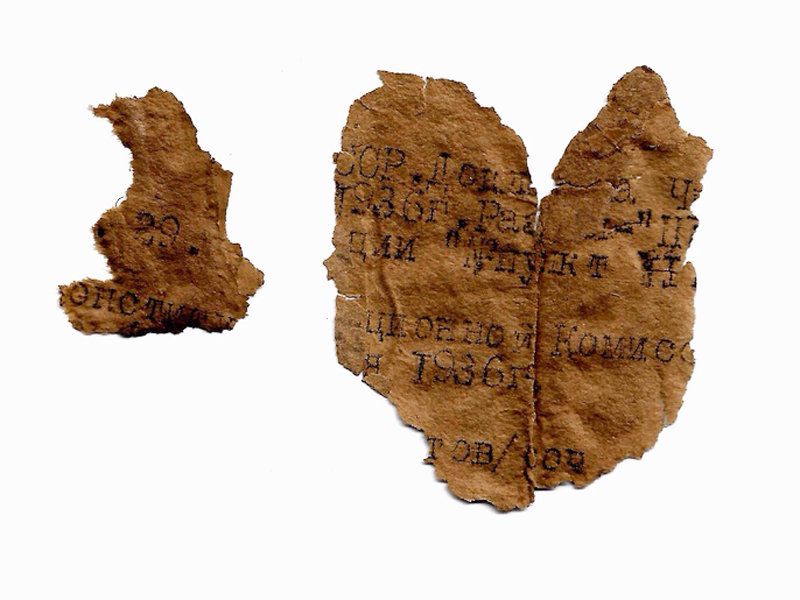 29.
онститу
СОР. Докл а Ч
1936г. Раз "П
ции "пункт Н
ционной Комисс
я 1936г
тов/ сор